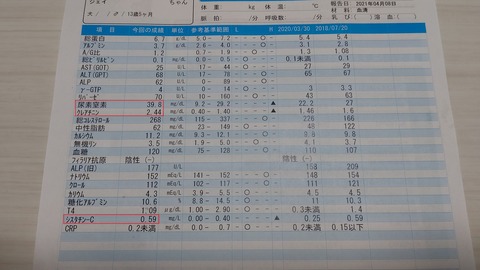 ジェイ ちゃん
犬 / ♂ / 13歳5ヶ月
体重 kg 体温 ℃
脈拍 / 分 呼吸数 / 分
報告日 2021年04月08日
材料 血清
乳び ( ) 溶血 ( )
項目 今回の成績 単位 参考基準範囲 L H 2020/03/30 2018/07/20
総蛋白 6.7 g/dL 5.0 - 7.2 5.4 5.4
アルブミン 3.7 g/dL 2.6 - 4.0 3.1 2.8
A/G比 1.2 0.7 - 1.9
総ビリルビン 0.1 mg/dL 0.1未満 0.1
AST(GOT) 25 U/L 17 - 44 27 29
ALT(GPT) 68 U/L 17 - 78 65 67
ALP 62 U/L 0 - 89
γ-GTP 4 U/L 3 3.3
リパーゼ 70 U/L 63
尿素窒素 39.8 mg/dL 9.2 - 29.2 ▲ 22.2 27
クレアチニン 2.44 mg/dL ▲ 1.46 1.6
総コレステロール 268 mg/dL 115 - 337 226 166
中性脂肪 62 mg/dL 23 - 149 48 122
カルシウム 11.2 mg/dL 9.3 - 12.1
無機リン 3.5 mg/dL 1.9 - 5.0
血糖 120 mg/dL 75 - 128 107 110
フィラリア抗原 陰性 (-) 陰性 (-)
ALP(旧) 177 U/L 158 209
ナトリウム 152 mEq/L 141 - 152 148 154
クロール 112 mEq/L 102 - 117 111 111
カリウム 4.3 mEq/L 4.5 4.5
糖化アルブミン 10.6 % 8.8 - 14.5 11 10.3
T4 1.09 μg/dL 1.00 - 2.90 0.3未満 1.4
シスタチン-C 0.59 mg/L 0.00 - 0.40 ▲ 0.25 0.59
CRP 0.2未満 mg/dL 0.00 - 0.2未満 0.15以下